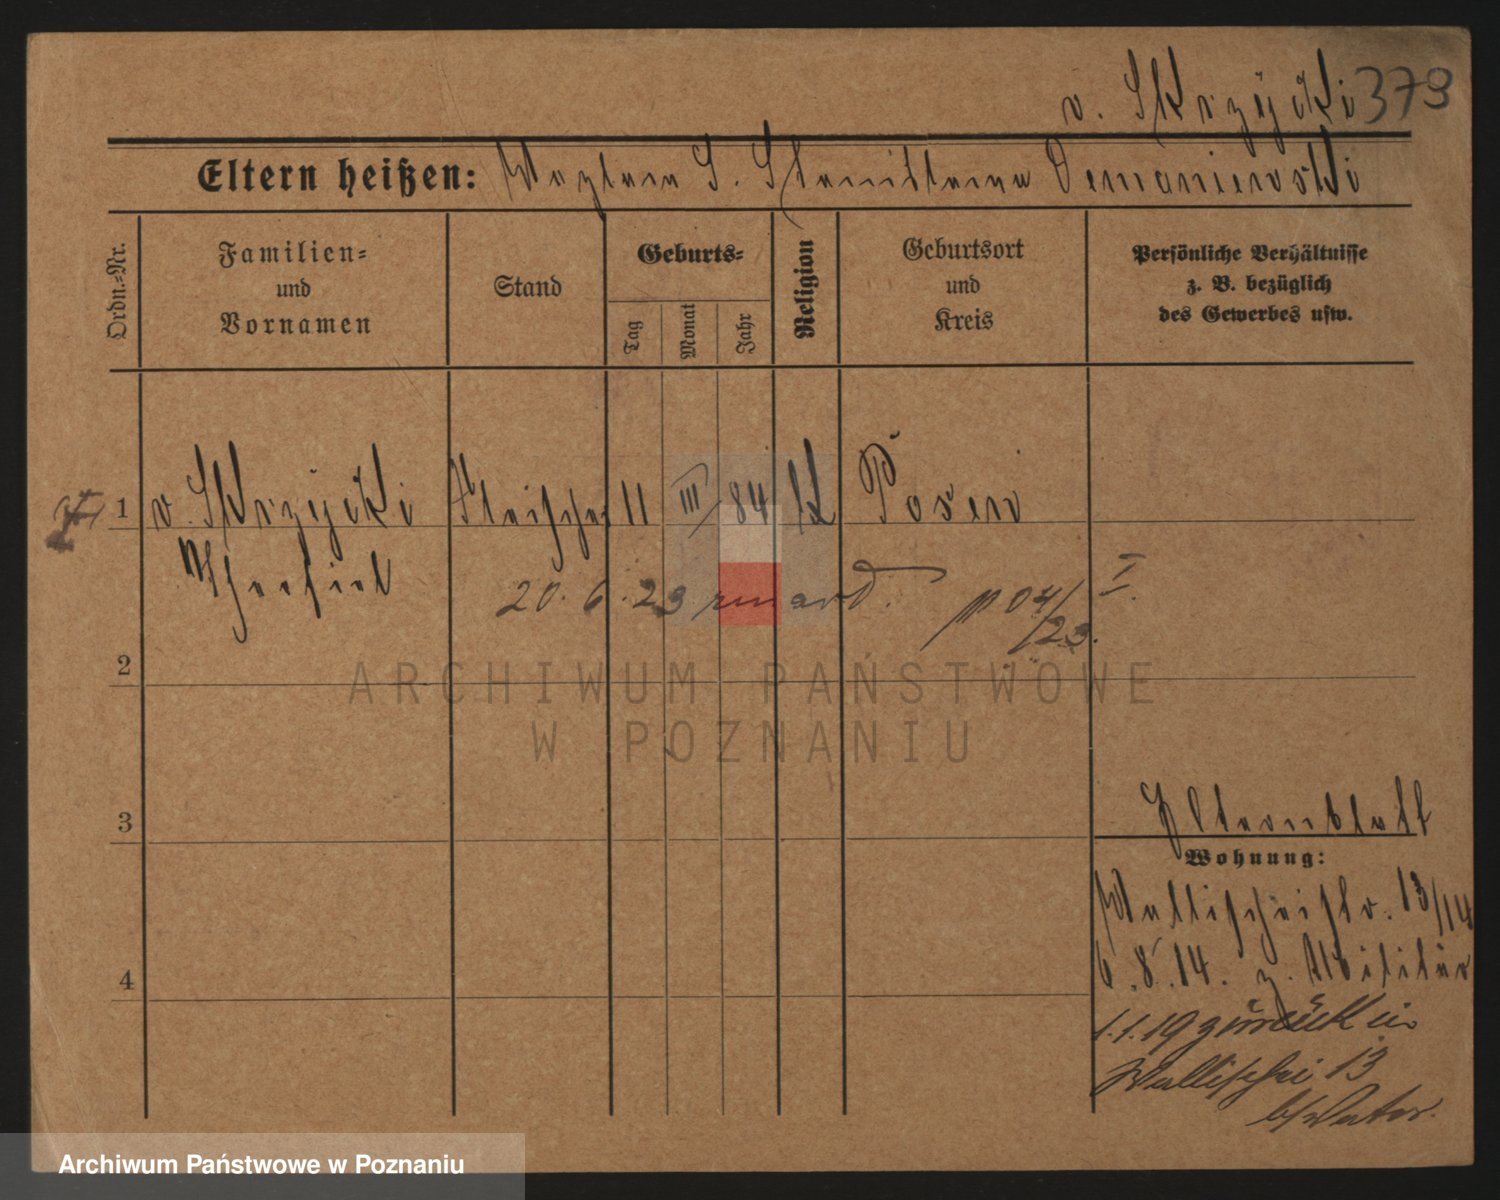 v. Skrzÿcki 379
Eltern heißen: Waclaw S. Stanislawa Domaniewski
Ordn.-Nr.
Familien- und Vornamen
Stand
Geburts-
Tag
Monat
Jahr
Religion
Geburtsort und Kreis
Persönliche Verhältnisse
z. B. bezüglich
des Gewerbes usw.
1 v. Skrzÿcki Fleischer 11 III 84 K Posen
20. 6. 23 p 04/23. I.
2
ARCHIWUM PAŃSTWOWE
W POZNANIU
3
Elternblatt
Wohnung:
Wallischeistr. 13/14
4
6.8.14. z. Militär
1.1.19 zurück in
Wallischei 13
b/Vater.
Archiwum Państwowe w Poznaniu